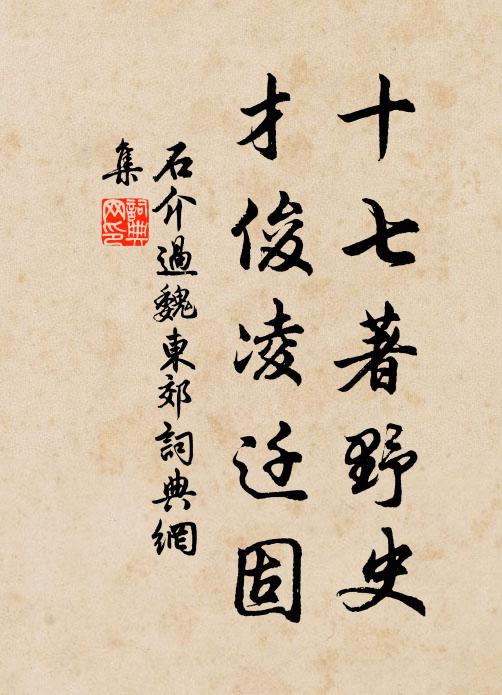 十七著野史
才俊凌迁固
石介過魏東郊詞典網
集
詞典網印